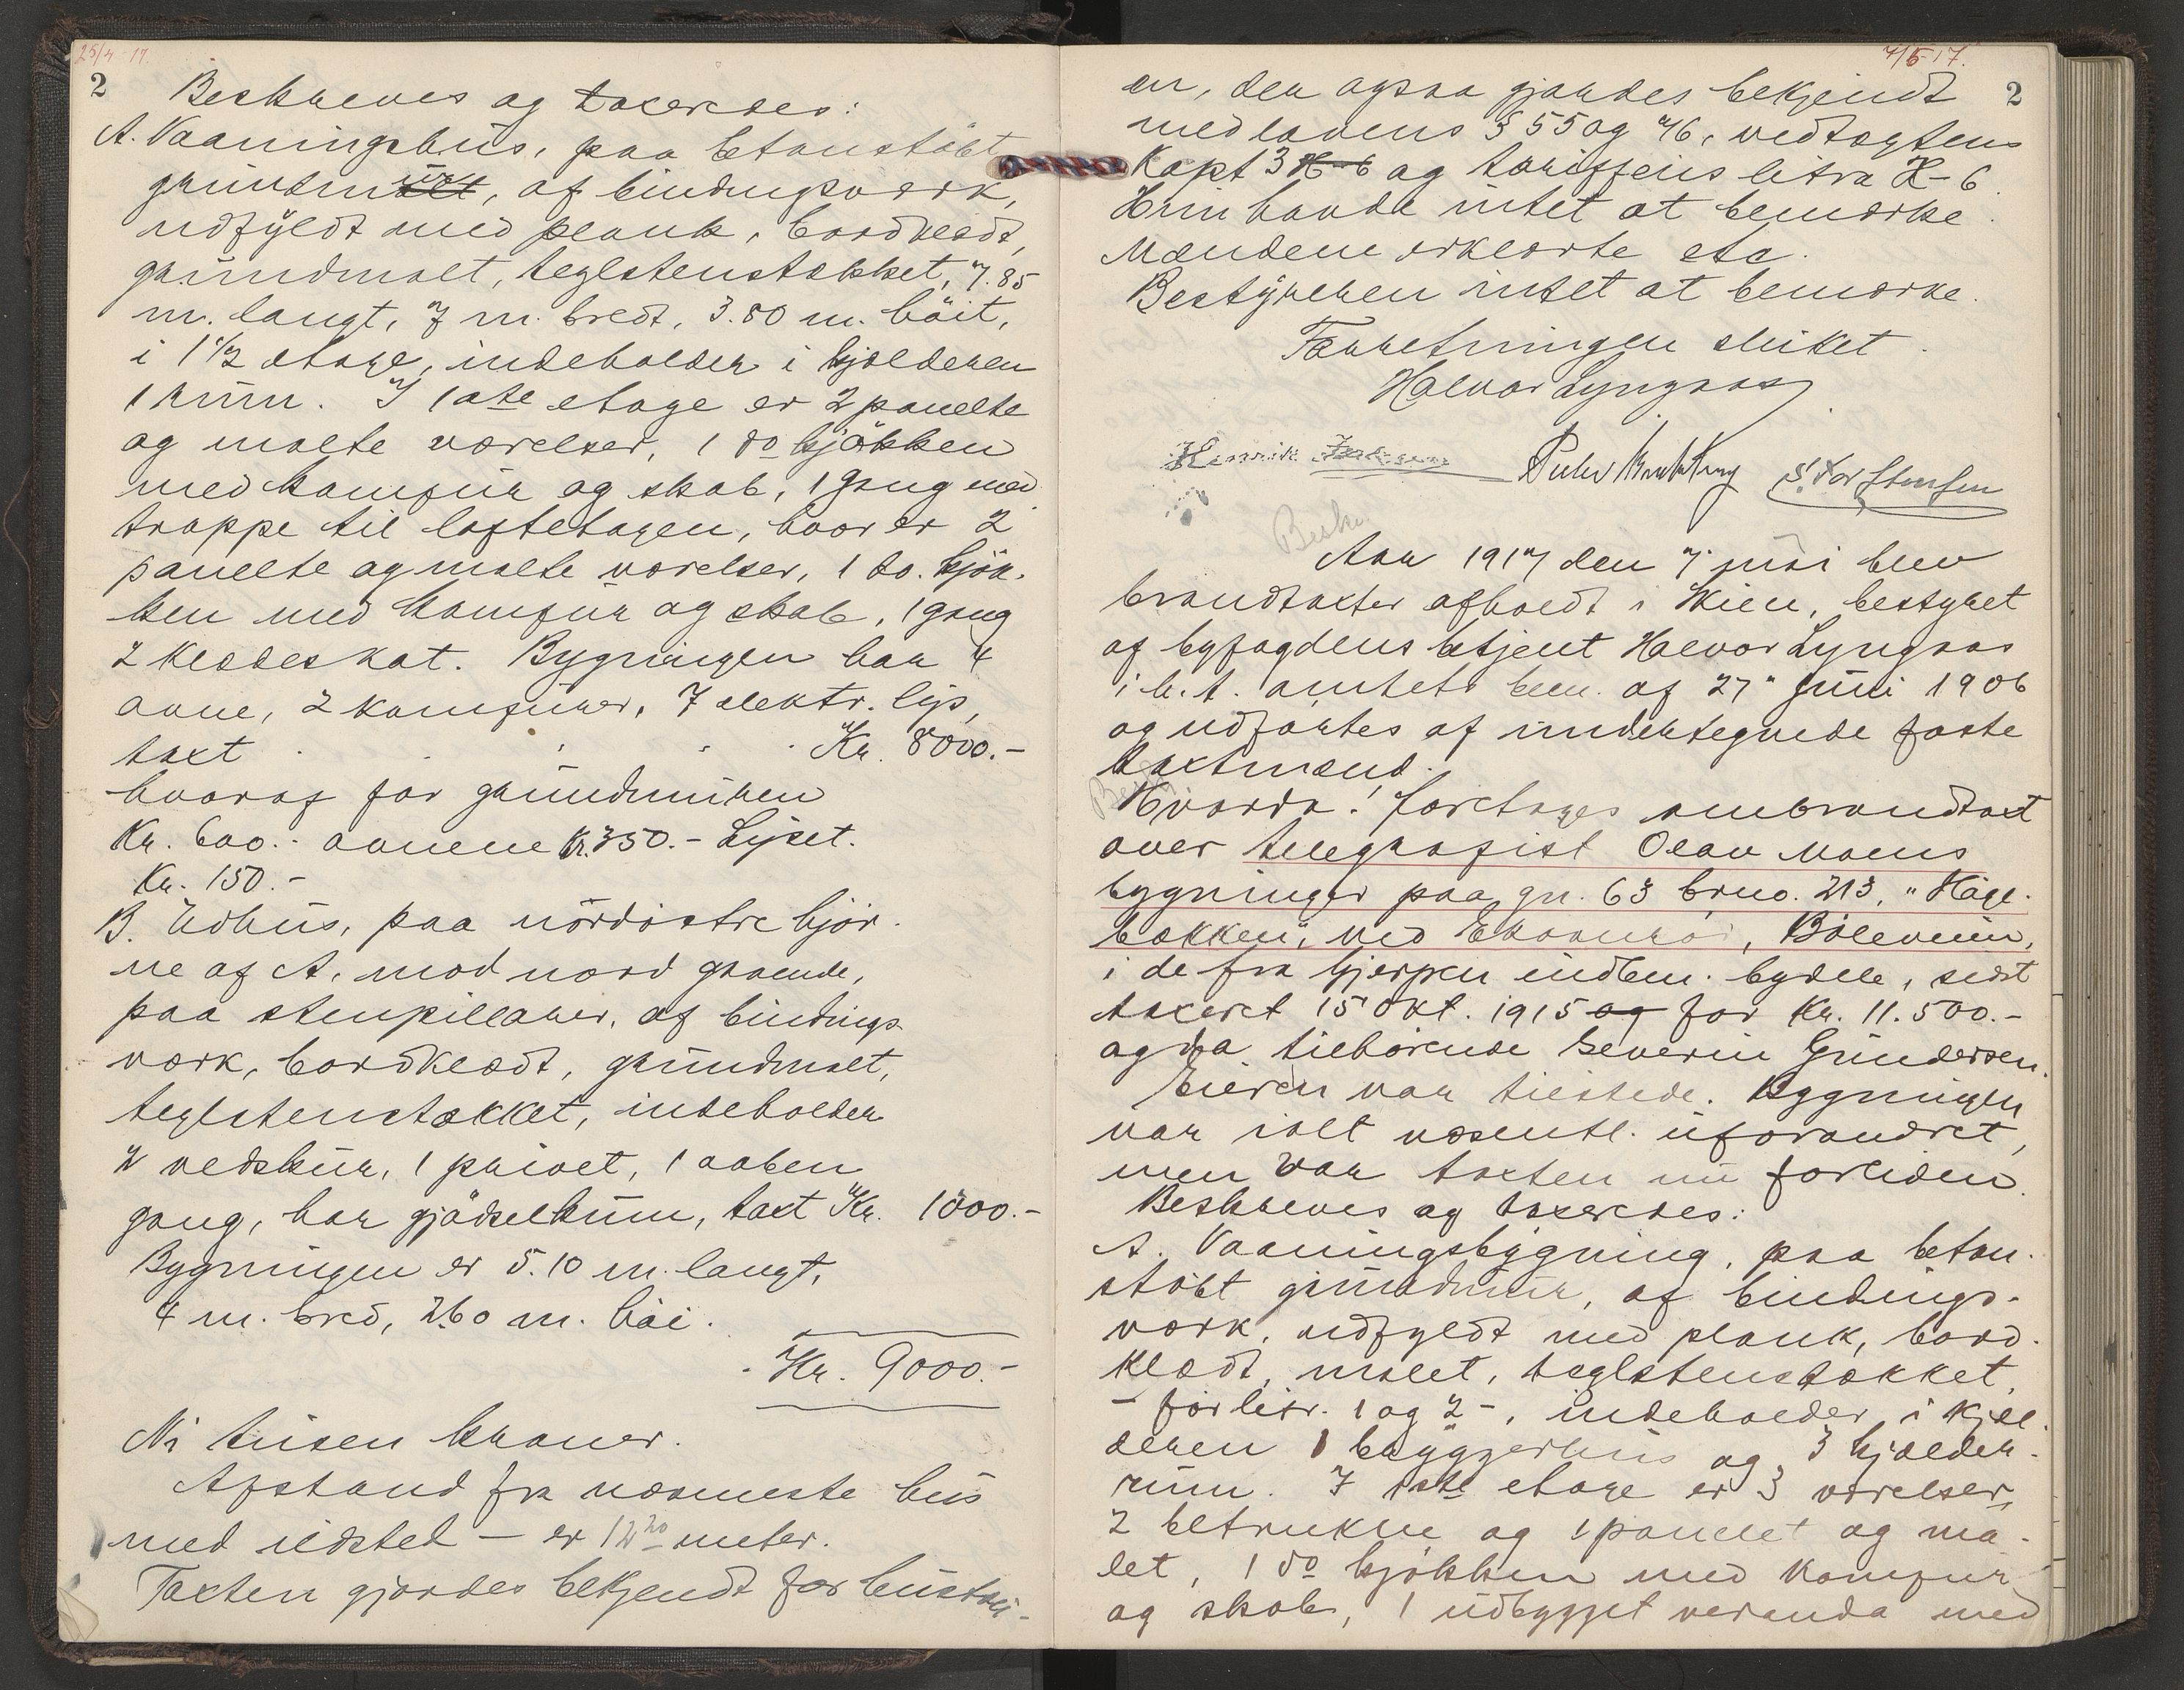 25/4 17.
2
Beskrives og taxeredes:
A. Vaaningshus, paa betonstöbt
grundmur, af bindingsværk,
udfyldt med plank, bordklædt,
grundmalt, teglstenstækket, 7.85
m. langt, 7 m. bredt, 3.80 m. höit,
i 1 1/2 etage, indeholder i kjælderen
1 rum. I 1ste etage er 2 panelte
og malte værelser, 1 do kjökken
med komfur og skab, 1 gang med
trappe til loftetagen, hvor er 2
panelte og malte værelser, 1 do. kjök-
ken med komfur og skab, 1 gang
2 klædeskot. Bygningen har 4
ovne, 2 komfurer, 7 elektr. lys,
taxt . . . . Kr. 8000.-
hvoraf for grundmuren
Kr. 600.- ovnene Kr. 350.- Lyset.
Kr. 150.-
B. Udhus, paa nordöstre hjör-
ne af A, mod nord gaaende,
paa stenpillarer, af bindings-
værk, bordklædt, grundmalt,
teglstenstækket, indeholder
2 vedskur, 1 privet, 1 aaben
gang, har gjödselkum, taxt Kr. 1000.-
Bygningen er 5.10 m. langt,
4 m. bred, 2.60 m. höi.
Kr. 9000.-
Ni tusen kroner.
Afstand fra nærmeste hus
med ildsted - er 12 20 meter.
Taxten gjordes bekjendt for husei-
7/5 17.
2
er, der ogsaa gjordes bekjendt
med lovens § 55 og 76, vedtægtens
Kapt 3 H-6 og tariffens litra H-6.
Hun havde intet at bemærke.
Mændene erklærte etc.
Bestyreren intet at bemærke.
Forretningen sluttet.
Halvor Lyngaas
Henrik
Aar 1917 den 7 mai blev
brandtaxter afholdt i Skien, bestyret
af byfogdens betjent Halvor Lyngaas
i h. t. amtets bem. af 27 Juni 1906
og udförtes af undertegnede faste
taxtmænd.
Hvorda! foretages ombrandtaxt
over telegrafist Olav Moens
bygninger paa gn. 63 brno. 213, "Hage-
bakken", ved , Bölevein,
i de fra Gjerpen indlem. bydele, sidst
taxeret 15 Okt. 1915 og for Kr. 11.500.-
og da tilhörende Severin Gundersen.
Eieren var tilstede. Bygningen
var ialt væsentl. uforandret,
men var taxten nu for liden.
Beskrives og taxeredes:
A. Vaaningsbygning, paa beton-
stöbt grundmur, af bindings-
værk, udfyldt med plank, bord-
klædt, malet, teglstenstækket,
- för litr. 1 og 2 -, indeholder i kjæl-
deren 1 bryggerhus og 3 kjælder-
rum. I 1ste etage er 3 værelser,
2 betrukne og 1 panelet og ma-
let, 1 do kjökken med komfur
og skab, 1 udbygget veranda med